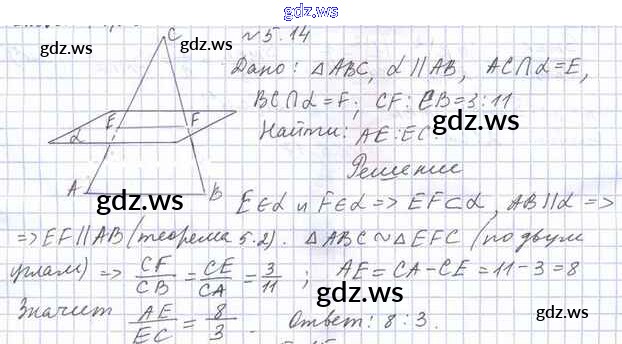 gdz.ws
№ 5.14
gdz.ws
Дано: △ABC, α∥AB, AC∩α=E,
BC∩α=F; CF:CB=3:11
Найти: AE:EC.
gdz.ws
Решение
C
E
F
α
A
B
gdz.ws
E∈α и F∈α => EF⊂α, AB∥α =>
=> EF∥AB (теорема 5.2). △ABC∼△EFC (по двум
углам) => CF/CB = CE/CA = 3/11 ; AE=CA−CE=11−3=8
gdz.ws
gdz.ws
Значит AE/EC = 8/3. Ответ: 8:3.
gdz.ws